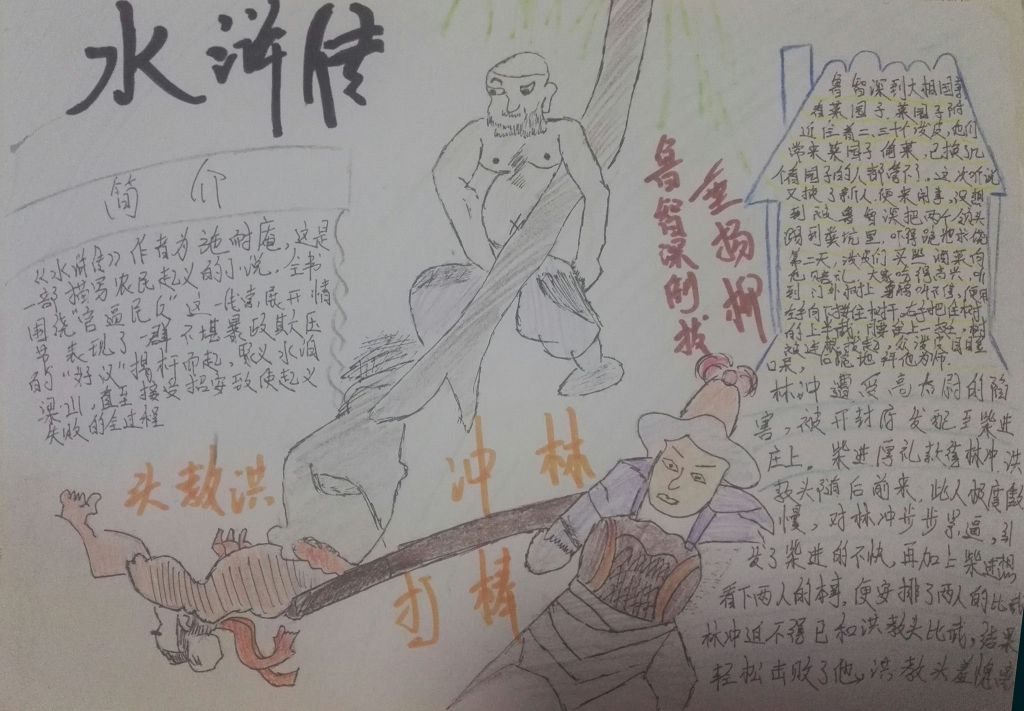 水浒传
简介
《水浒传》作者为施耐庵，这是
一部描写农民起义的小说。全书
围绕“官逼民反”这一线索展开情
节，表现了一群不堪暴政欺压
的“好汉”揭杆而起，聚义水泊
梁山，直至接受招安致使起义
失败的全过程
鲁智深倒拔
垂杨柳
鲁智深到大相国寺
看菜园子，菜园子附
近住着二、三十个泼皮，他们
常来菜园子偷菜，已换了几
个看园子的人都管不了。这次听说
又换了新人，便来闹事，没想
到被鲁智深把两个领头
踢到粪坑里，吓得跪地求饶
第二天，泼皮们买些酒菜向
他赔礼。大家吃得高兴，听
到门外树上乌鸦叫不停，便用
左手向下搂住树杆，右手把住树
的上半截，腰往上一挺，树
被连根拔起，众泼皮目瞪
口呆，后跪地拜他为师。
林冲
棒打
洪教头
林冲遭受高太尉的陷
害，被开封府发配至柴进
庄上。柴进厚礼款待林冲，洪
教头随后前来，此人极度傲
慢，对林冲步步紧逼，引
发了柴进的不快，再加上柴进想
看下两人的本事，便安排了两人的比武
林冲迫不得已和洪教头比武，结果
轻松击败了他，洪教头羞愧离